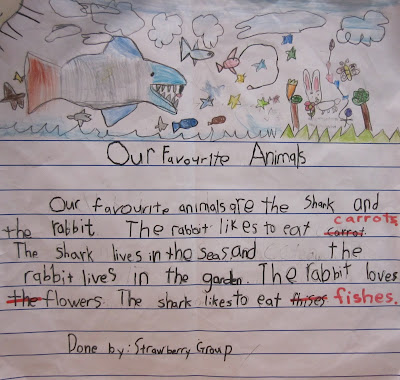 Our Favourite Animals
Our favourite animals are the Shark and
the rabbit. The rabbit likes to eat carrot. carrots
The shark lives in the seas and the
rabbit lives in the garden. The rabbit loves
the flowers. The shark likes to eat fhises fishes.
Done by: Strawberry Group